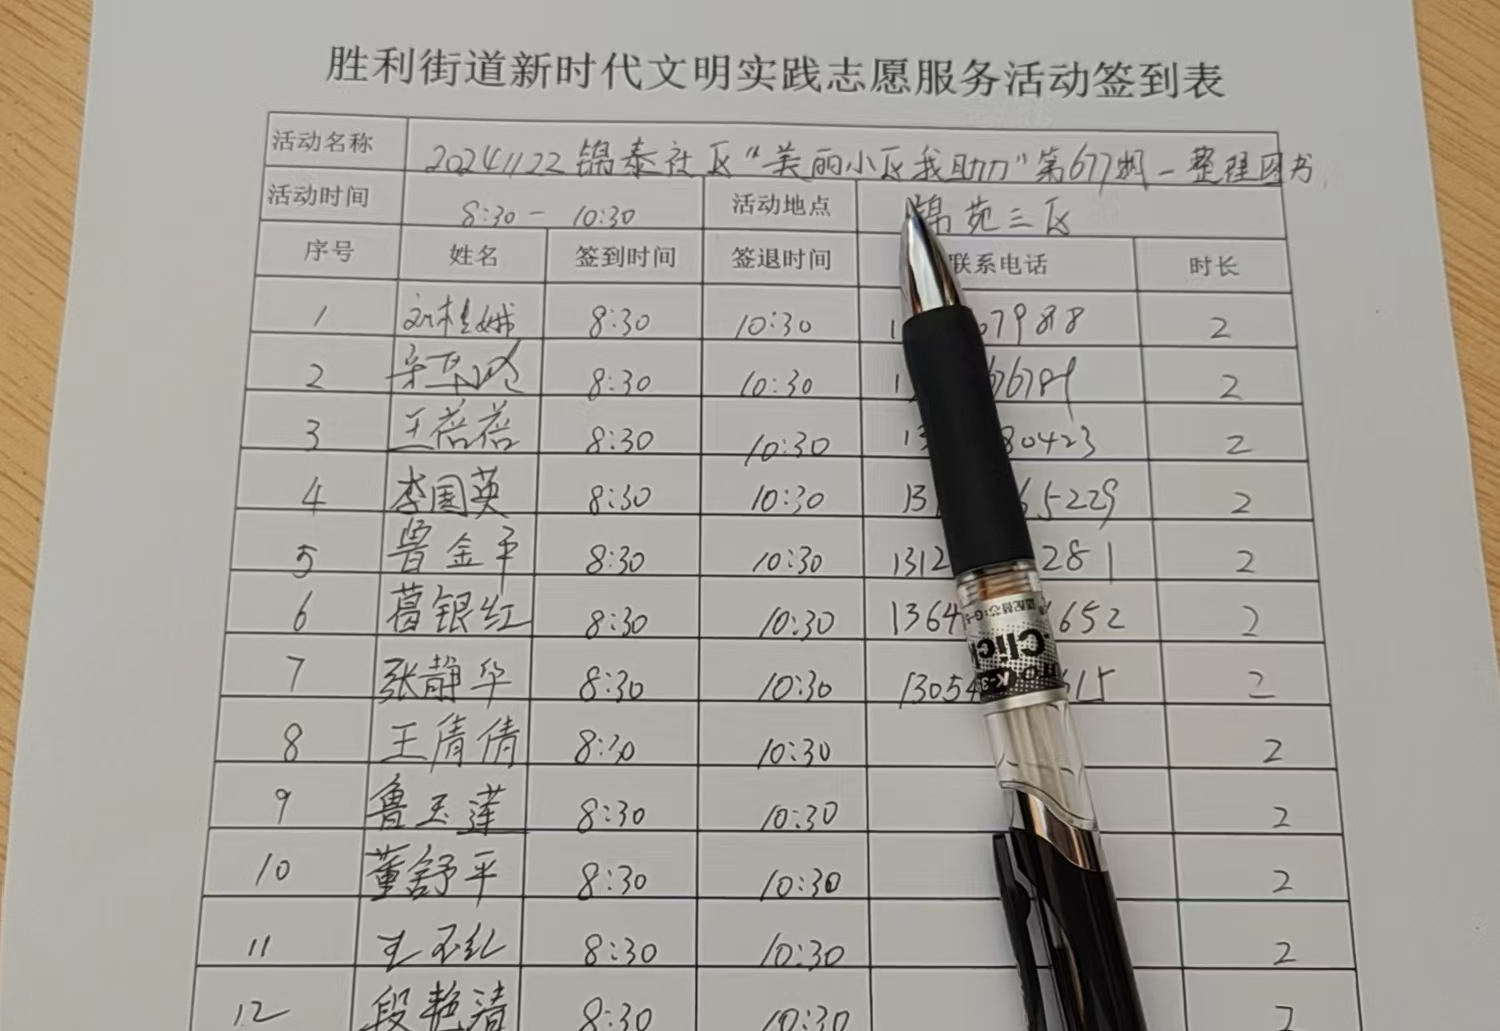 胜利街道新时代文明实践志愿服务活动签到表
活动名称 20241122锦泰社区“美丽小区我助力”第677期-整理图书
活动时间 8:30- 10:30 活动地点 锦苑三区
序号 姓名 签到时间 签退时间 联系电话 时长
1 刘桂娥 8:30 10:30 1 67988 2
2 8:30 10:30 1 66789 2
3 王蓓蓓 8:30 10:30 13 80423 2
4 李国英 8:30 10:30 13 65229 2
5 曾金平 8:30 10:30 1312 281 2
6 葛银红 8:30 10:30 1364 1652 2
7 张静华 8:30 10:30 13054 615 2
8 王倩倩 8:30 10:30 2
9 鲁玉莲 8:30 10:30 2
10 董舒平 8:30 10:30 2
11 王玉红 8:30 10:30 2
12 段艳清 8:30 10:30 2
适配替芯:G-5
Click
K-3